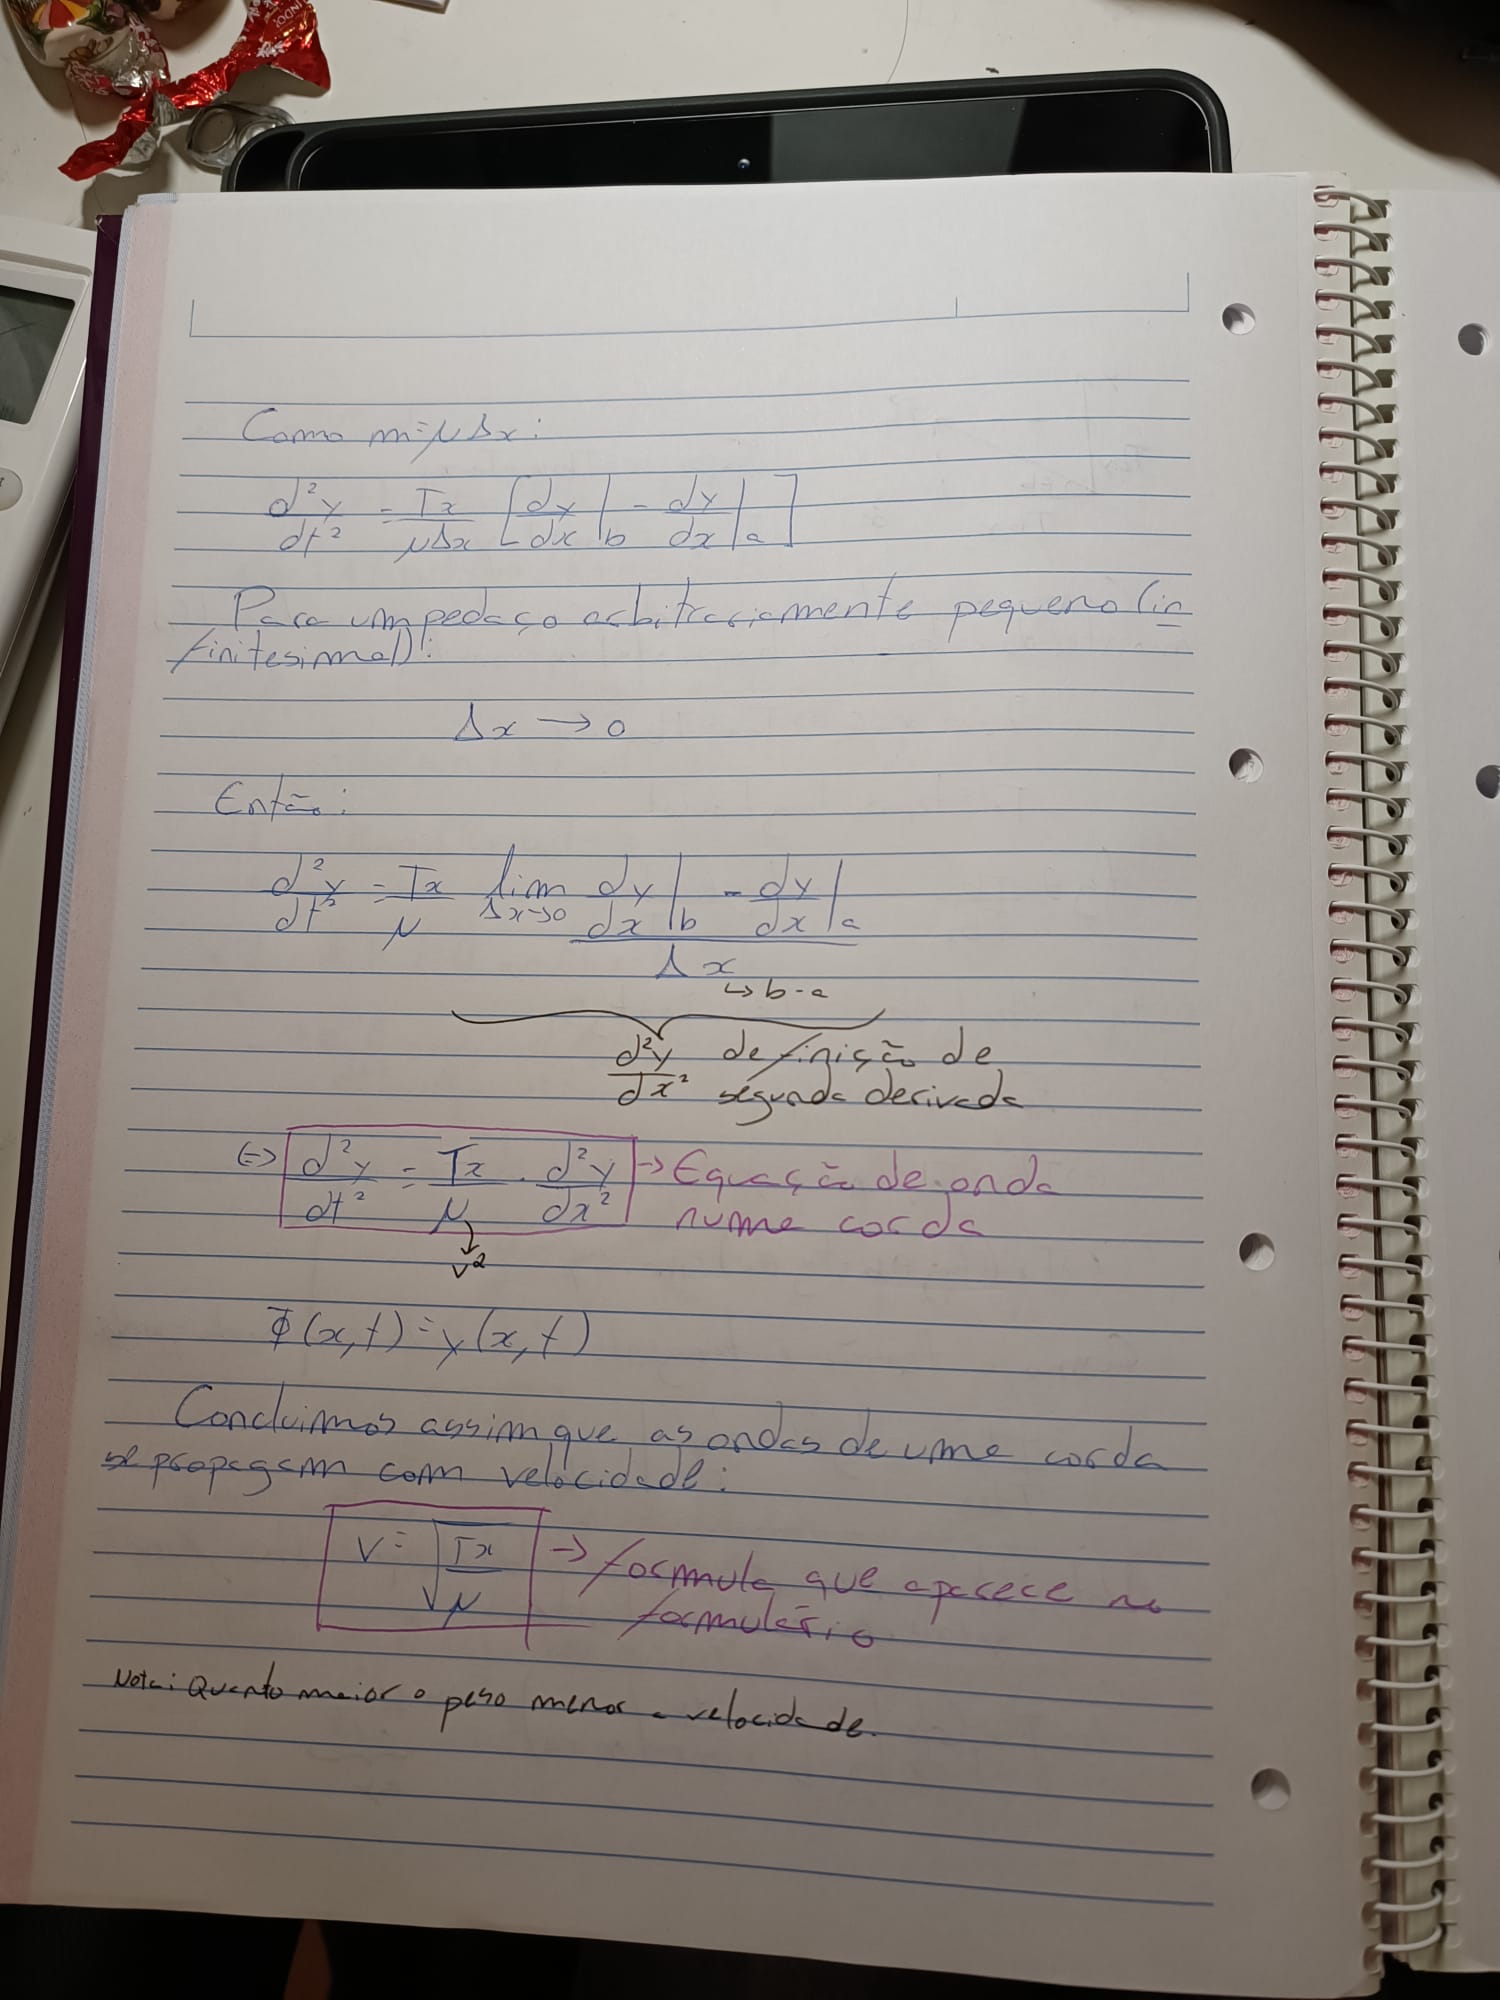 Como m=μΔx:
d²y/dt² = Tx/μΔx [dy/dx|b - dy/dx|a]
Para um pedaço arbitrariamente pequeno (in
finitesimal):
Δx → 0
Então:
d²y/dt² = Tx/μ lim Δx→0 (dy/dx|b - dy/dx|a)/Δx
↳ b-a
d²y/dx² definição de
segunda derivada
(=> d²y/dt² = Tx/μ . d²y/dx² -> Equação de onda
numa corda
v²
Φ(x,t) = y(x,t)
Concluimos assim que as ondas de uma corda
se propagam com velocidade:
v = √Tx/μ -> formula que aparece no
formulário
Nota: Quanto maior o peso menor a velocidade.